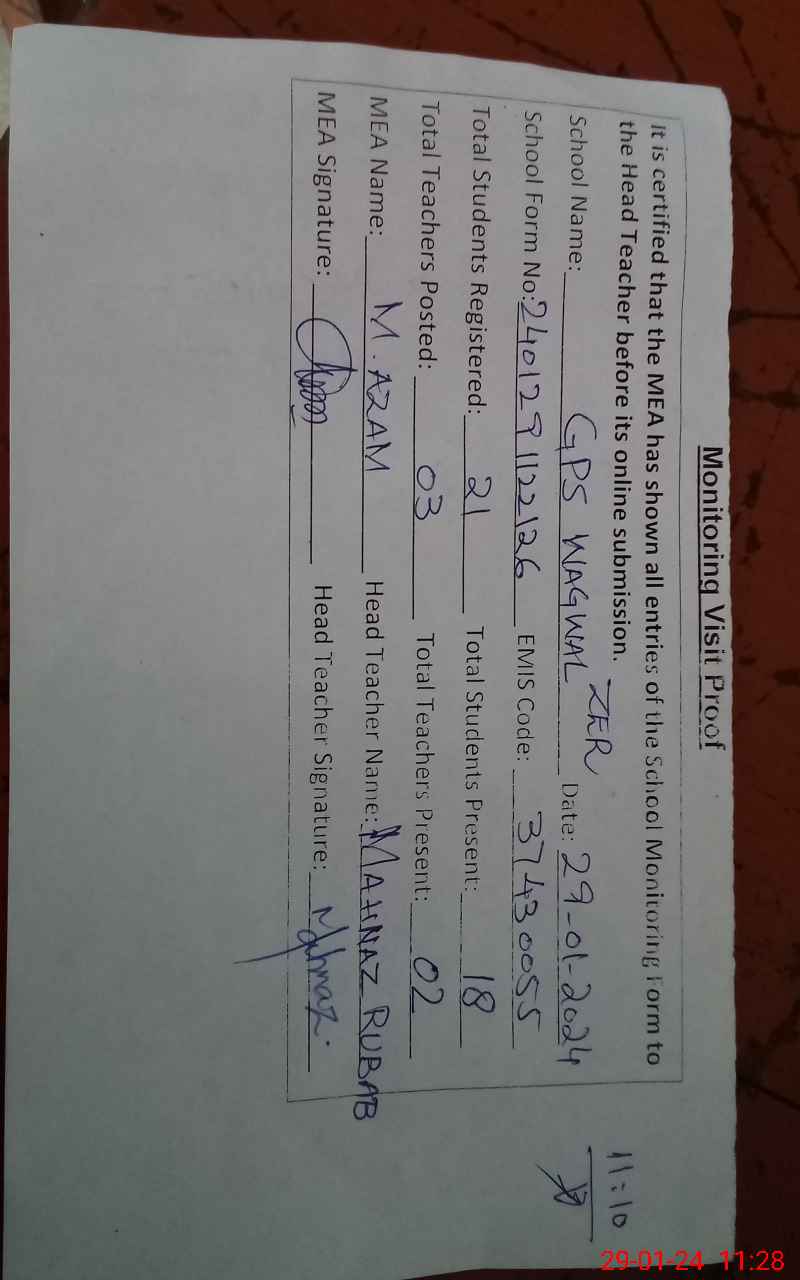 Monitoring Visit Proof
It is certified that the MEA has shown all entries of the School Monitoring Form to
the Head Teacher before its online submission.
School Name: GPS WAGWAL ZER Date: 29-01-2024
School Form No: 2401291122126 EMIS Code: 37430055
Total Students Registered: 21 Total Students Present: 18
Total Teachers Posted: 03 Total Teachers Present: 02
MEA Name: M. AZAM Head Teacher Name: MAHNAZ RUBAB
MEA Signature: Head Teacher Signature: Mahnaz.
11:10
29-01-24 11:28